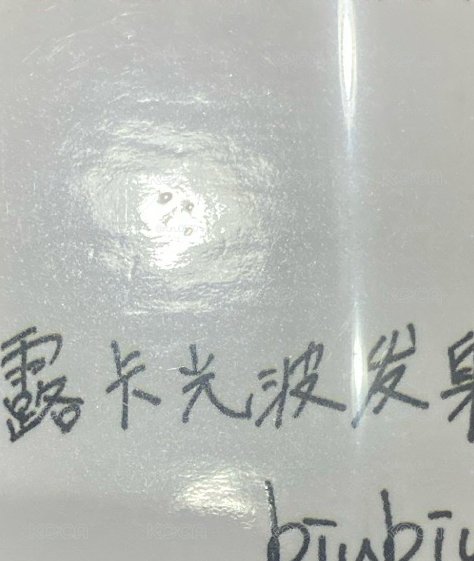 露卡光波发
bīubīu